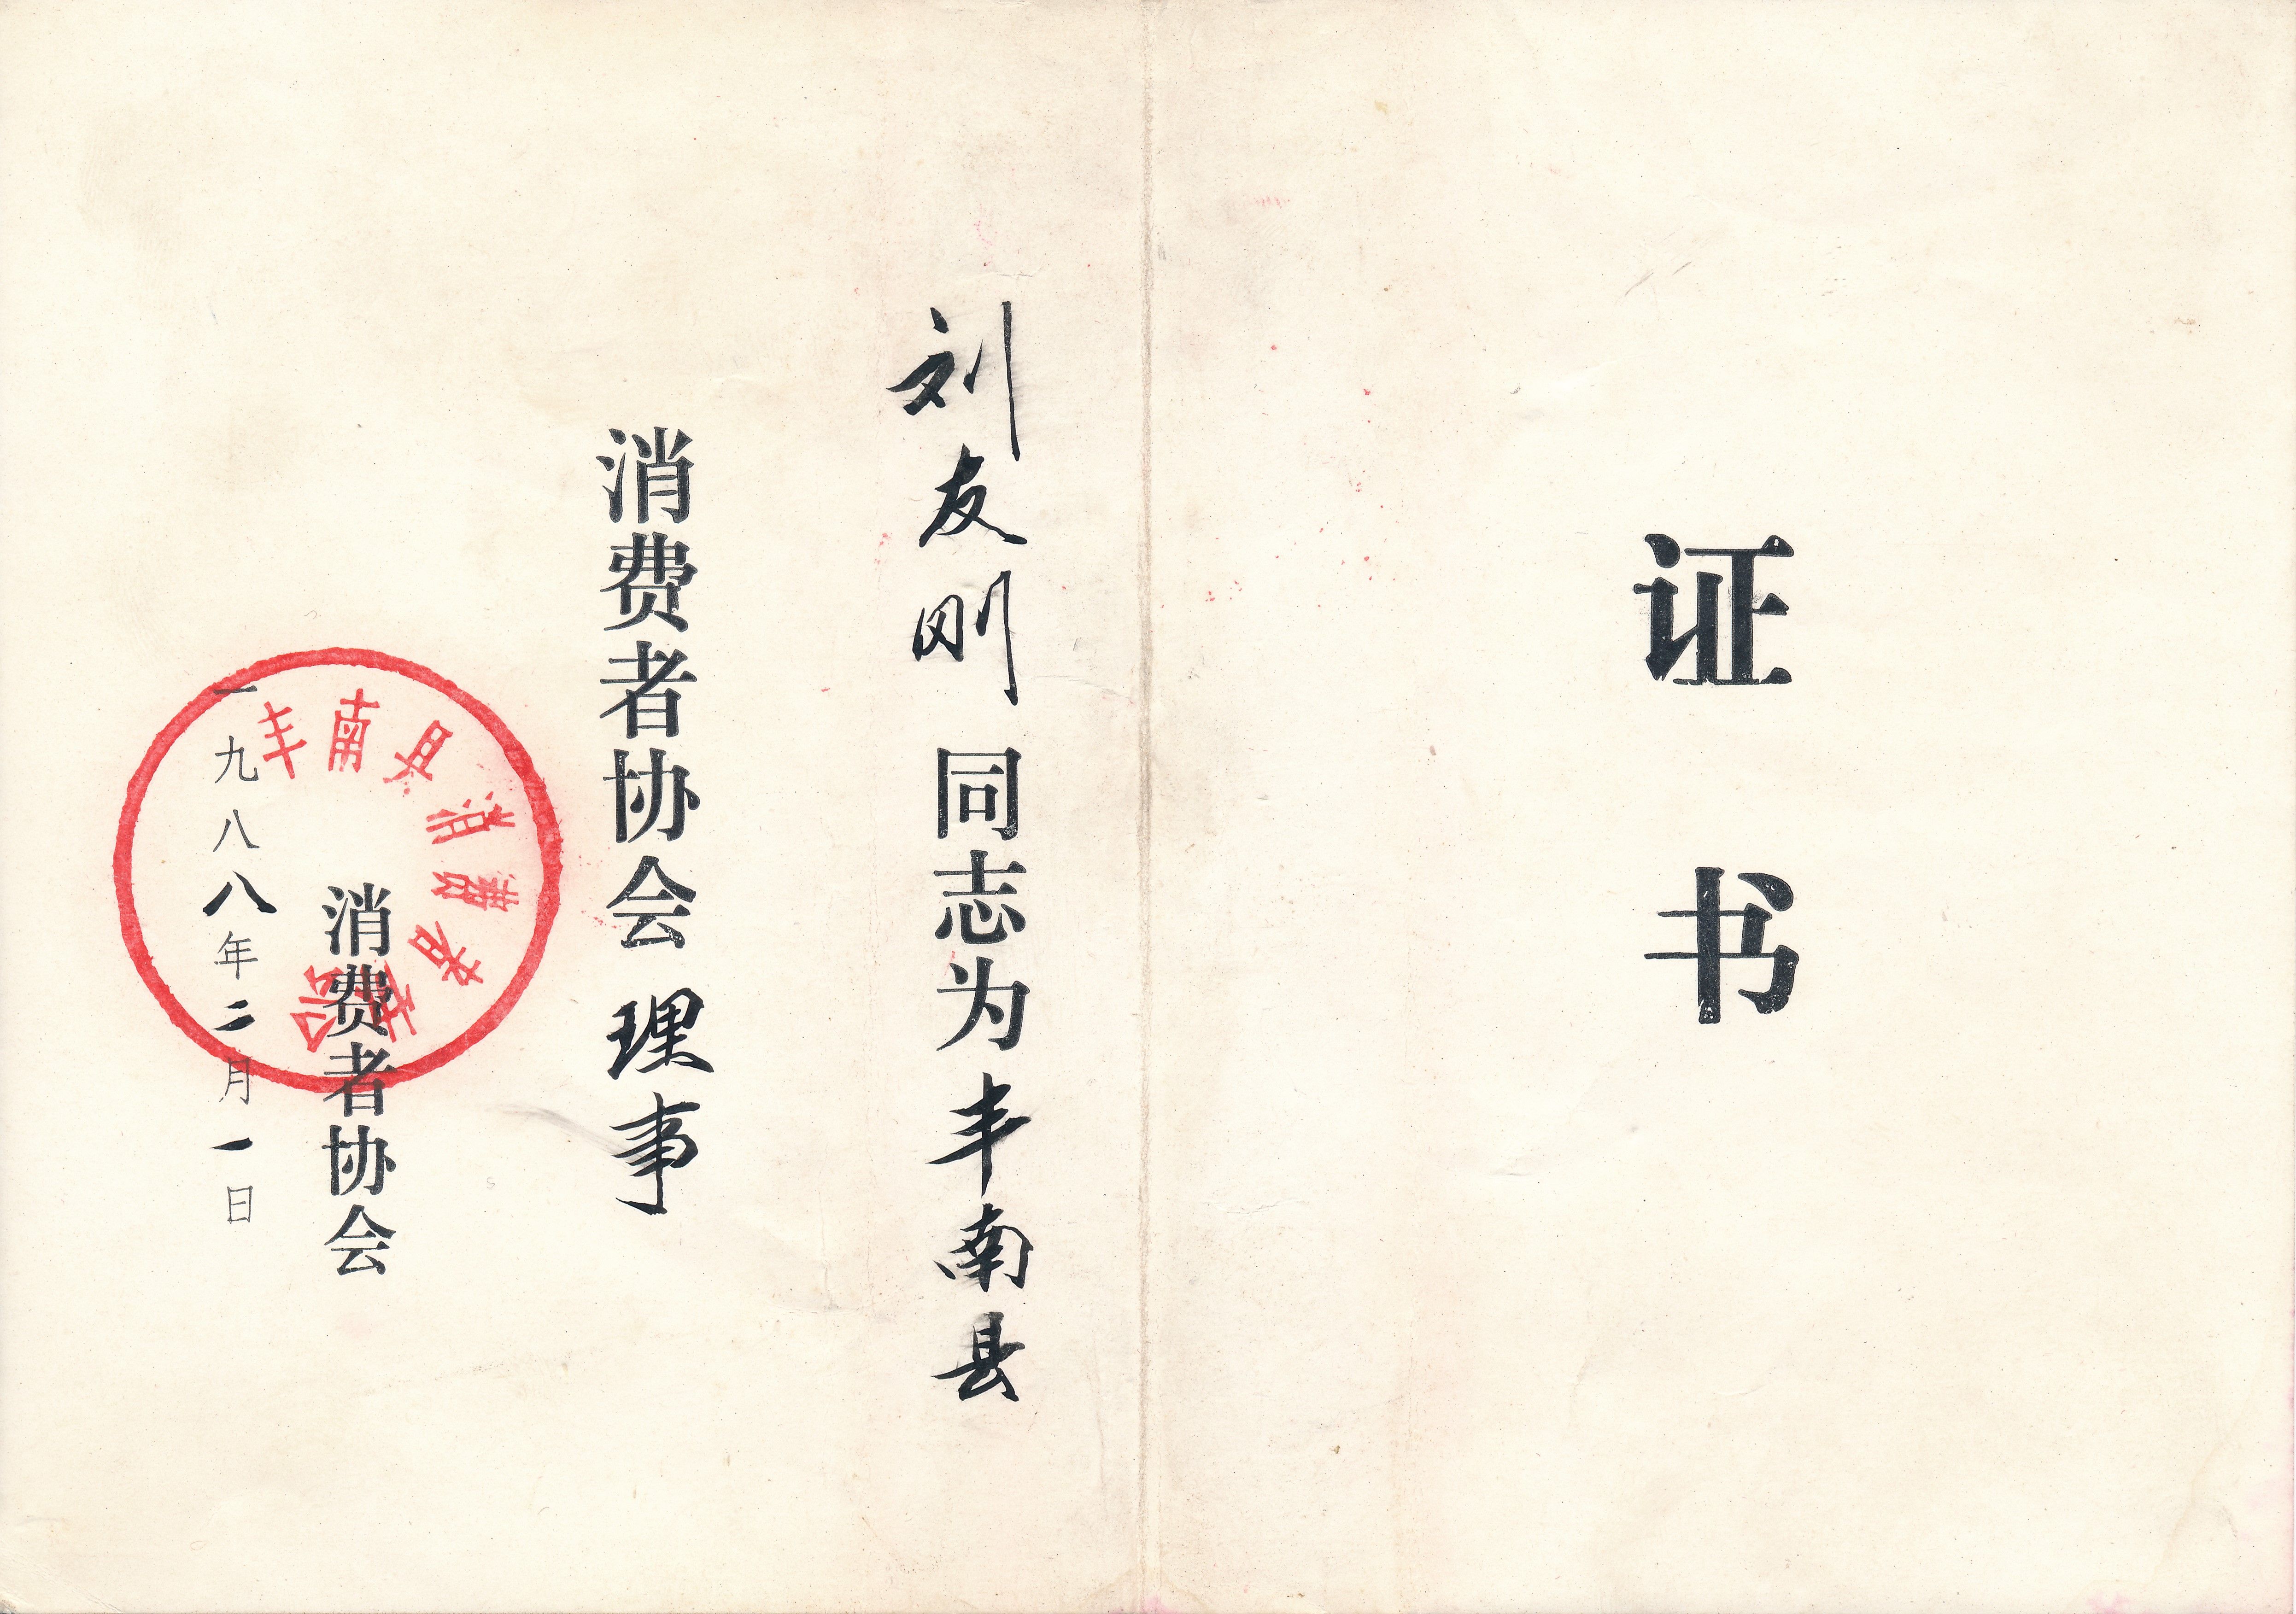 证书
刘友刚同志为丰南县
消费者协会理事
消费者协会
一九八八年二月一日
丰南县消费者协会